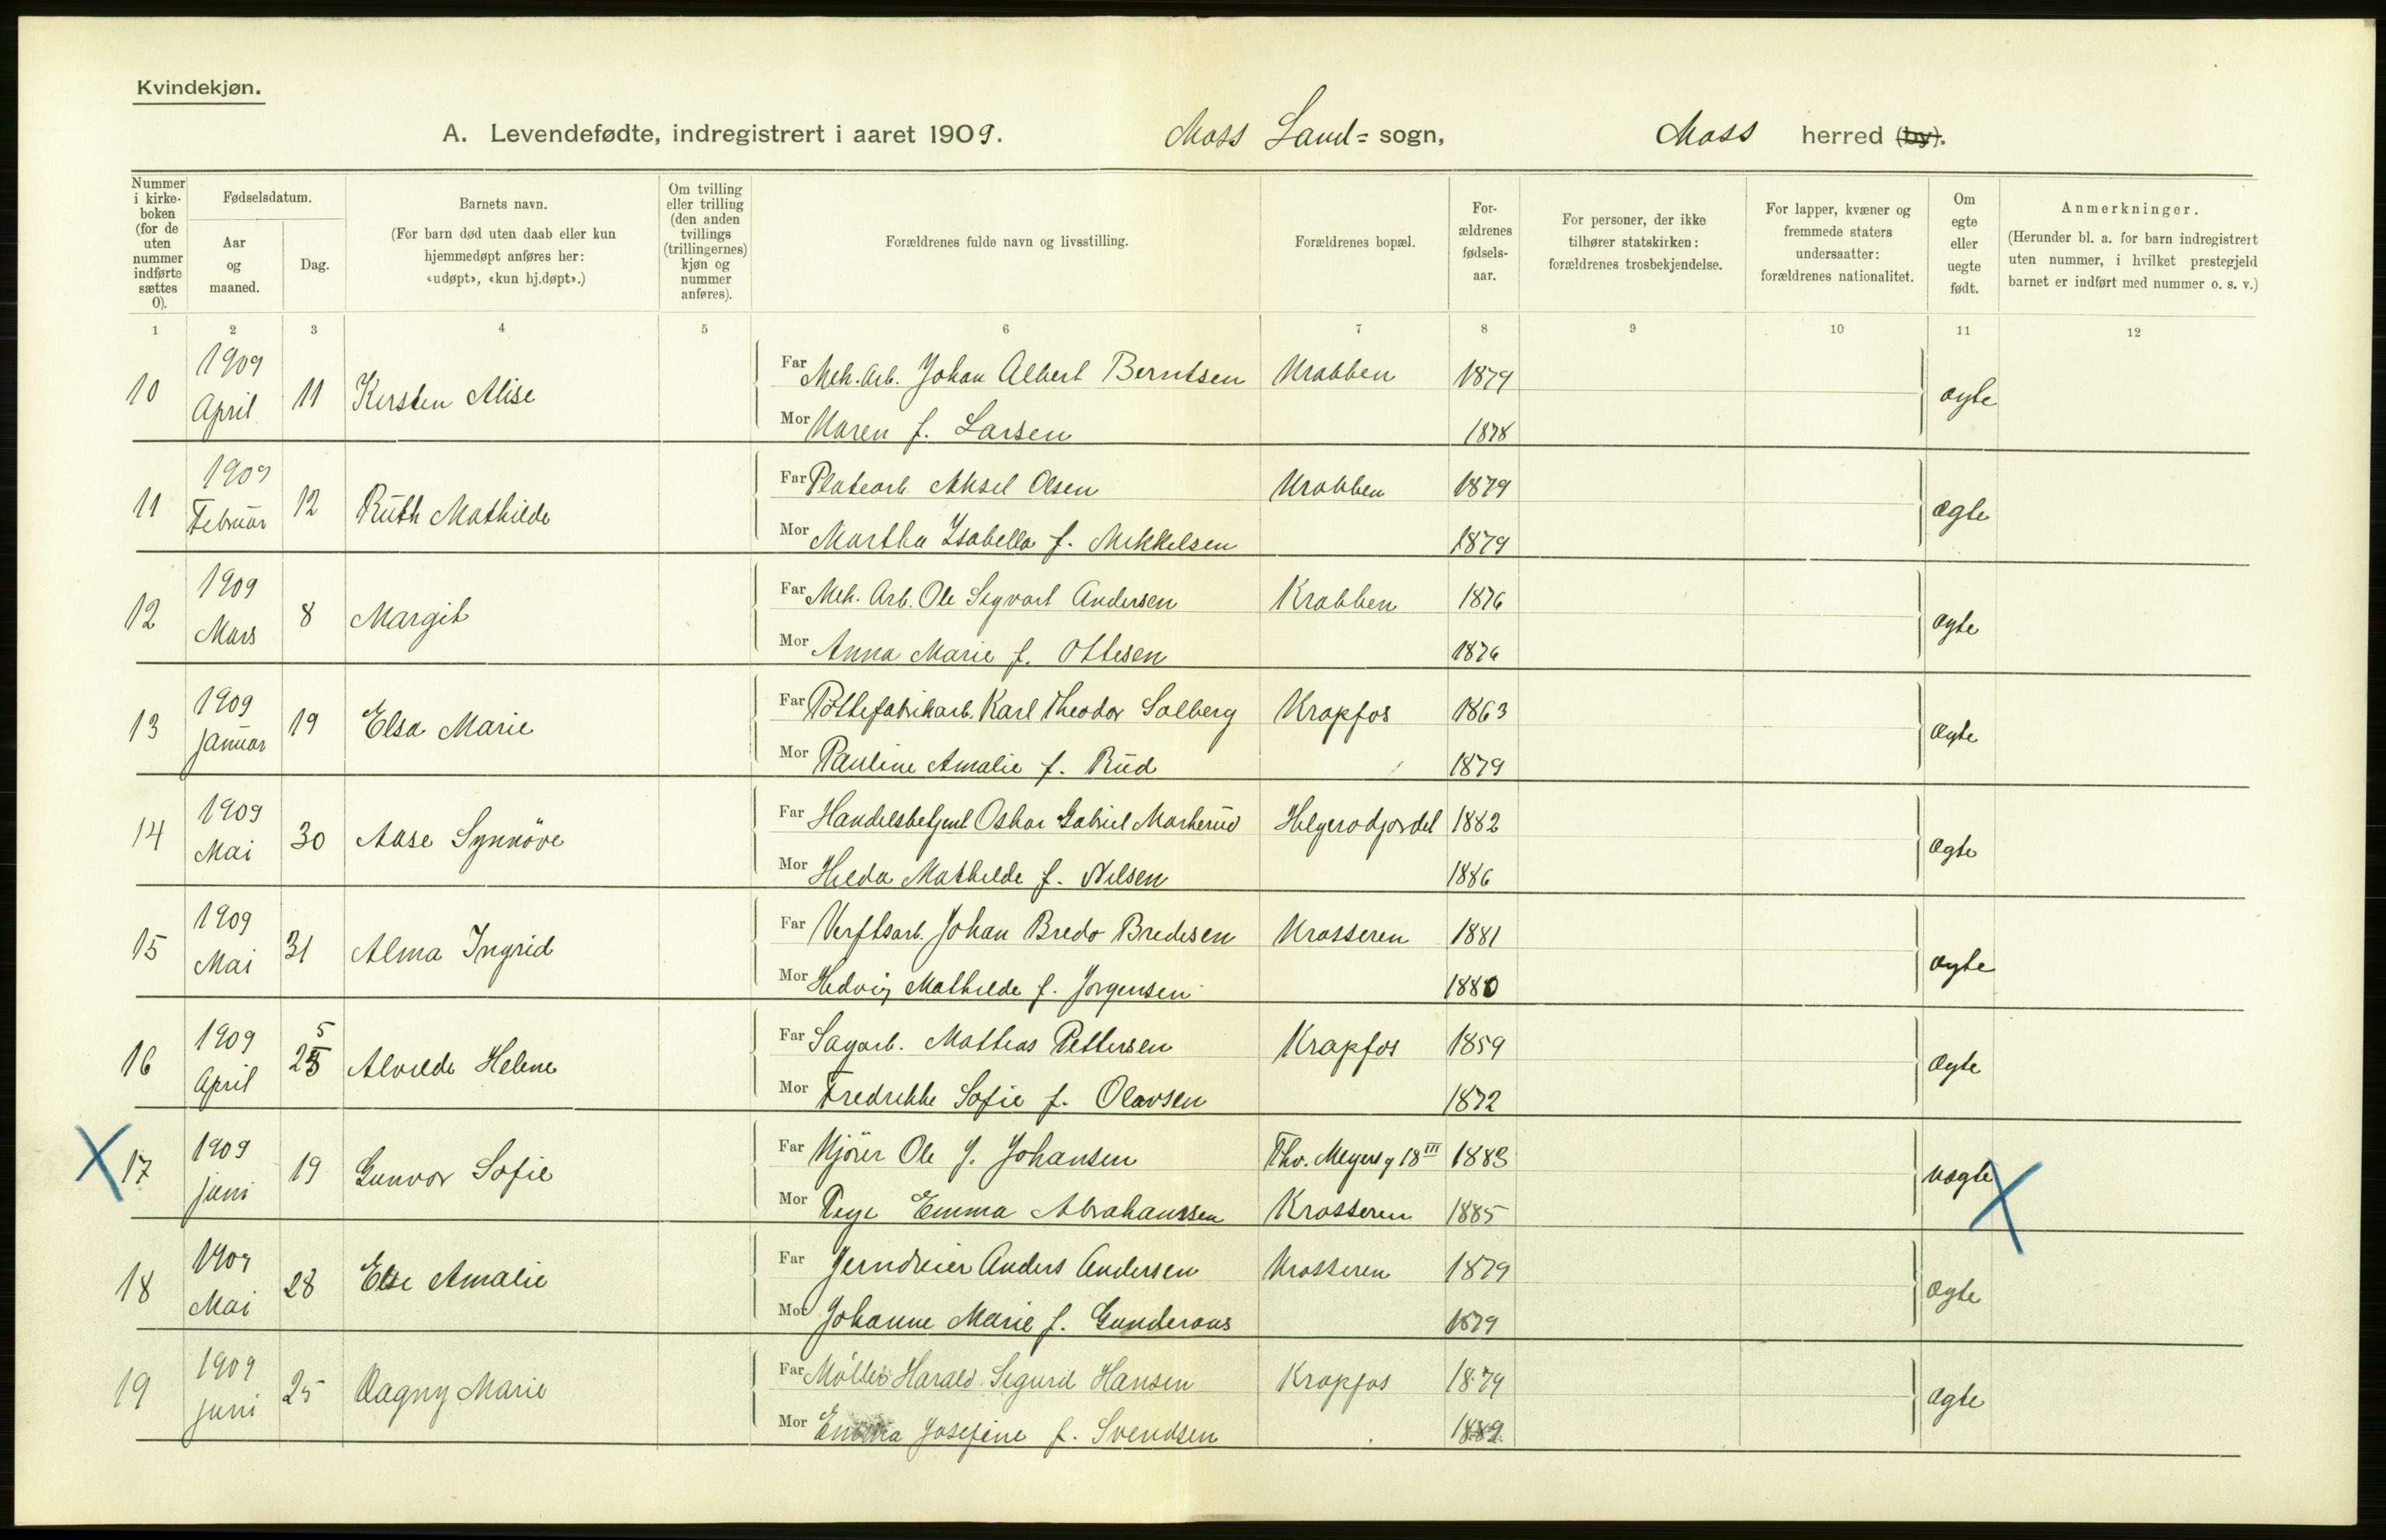 Kvindekjøn.
A. Levendefødte, indregistrert i aaret 1909. Moss Land= sogn, Moss herred (by).
Nummer i kirke-boken (for de uten nummer indførte sættes 0).
Fødselsdatum.
Aar og maaned.
Dag.
Barnets navn.
(For barn død uten daab eller kun hjemmedøpt anføres her: «udøpt», «kun hj.døpt».)
Om tvilling eller trilling (den anden tvillings (trillingernes) kjøn og nummer anføres).
Forældrenes fulde navn og livsstilling.
Forældrenes bopæl.
For-ældrenes fødsels-aar.
For personer, der ikke tilhører statskirken: forældrenes trosbekjendelse.
For lapper, kvæner og fremmede staters undersaatter: forældrenes nationalitet.
Om egte eller uegte født.
Anmerkninger.
(Herunder bl. a. for barn indregistrert uten nummer, i hvilket prestegjeld barnet er indført med nummer o. s. v.)
1 2 3 4 5 6 7 8 9 10 11 12
10 1909 April 11 Kirsten Alise
Far Mek. Arb. Johan Albert Berntsen Krabben 1879 ægte
Mor Maren f. Larsen 1878
11 1909 Februar 12 Ruth Mathilde
Far Platearb. Aksel Olsen Krabben 1879 ægte
Mor Martha Isabella f. Mikkelsen 1879
12 1909 Mars 8 Margit
Far Mek. Arb. Ole Sigvart Andersen Krabben 1876 ægte
Mor Anna Marie f. Ottesen 1876
13 1909 Januar 19 Elsa Marie
Far Pottefabrikarb. Karl Theodor Solberg Krapfos 1863 ægte
Mor Pauline Amalie f. Rud 1879
14 1909 Mai 30 Aase Synnöve
Far Handelsbetjent Oskar Gabriel Markerud 1882 ægte
Mor Hilda Mathilde f. Nilsen 1886
15 1909 Mai 31 Alma Ingrid
Far Verftsarb. Johan Bredo Bredesen Krosseren 1881 ægte
Mor Hedvig Mathilde f. Jørgensen 1880
16 1909 April 25 5 Alvilde Helene
Far Sagarb. Mathias Pettersen Krapfos 1859 ægte
Mor Fredrikke Sofie f. Olavsen 1872
17 1909 Juni 19 Gunvor Sofie
Far Kjører Ole J. Johansen Thv. Meyers g 18 III 1883 uægte
Mor Pige Emma Abrahamssen Krosseren 1885
18 1909 Mai 28 Else Amalie
Far Jerndreier Anders Andersen Krosseren 1879 ægte
Mor Johanne Marie f. Gundersens 1879
19 1909 Juni 25 Dagny Marie
Far Møller Harald Sigurd Hansen Krapfos 1879 ægte
Mor Emma Josefine f. Svendsen 1889